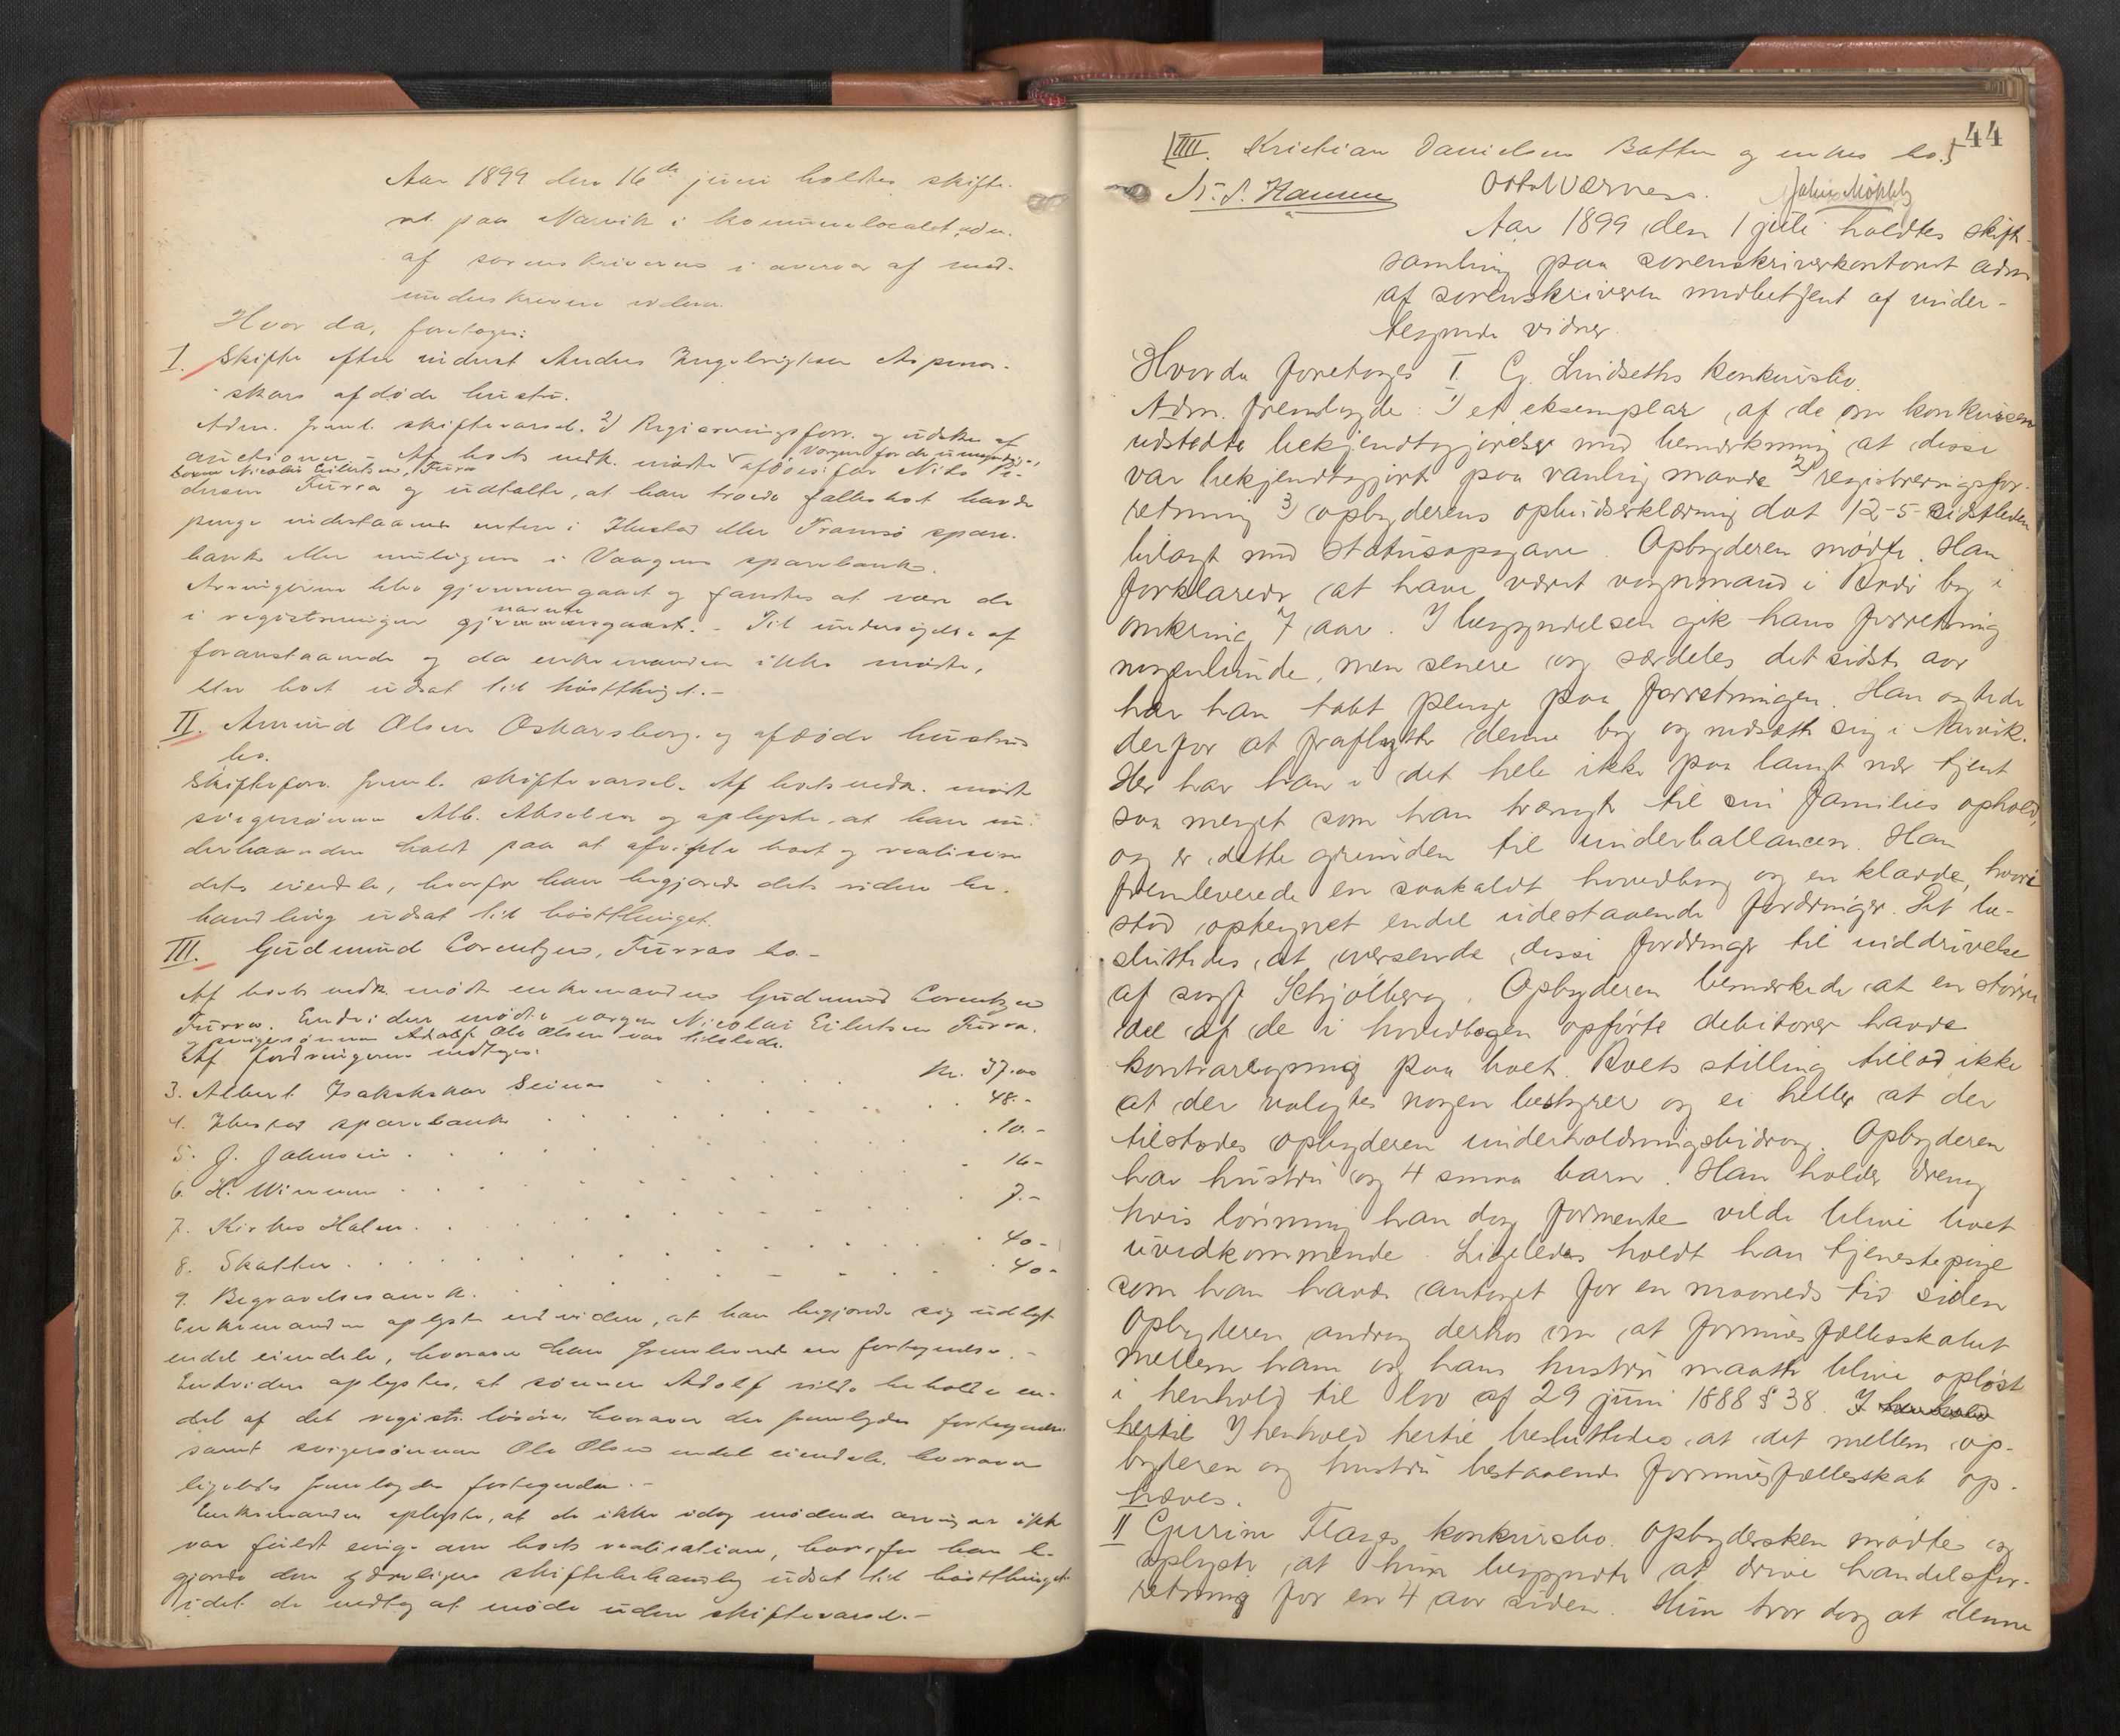 Aar 1899 den 16de juni holdtes skifte-
ret paa Narvik i kommunelocalet adm.
af sorenskriveren i overvær af med-
underskrevne vidner.
Hvor da, foretoges:
I. Skifte efter inderst Anders Ingebrigtsen
skars afdøde hustru.
Adm. freml. skiftevarsel. 2) Registreringsforr. og udskr. af
auctionen. – Af boets vedk. mødte afdødes far Nils Pe-
vorgen for de umyndige,
Nicolai Eilertsen, Furra
dersen Furra og udtalte, at han troede fællesboet havde
penge indestaaende enten i Ibestad eller Tromsø spare-
bank eller muligens i Vaagens sparebank.
Arvingerne blev gjennemgaaet og fandtes at være de
i registreringen nævnte. – Til undersøgelse af
foranstaaende og da enkemanden ikke mødte,
blev boet udsat til høstthinget. –
II. Amund Olsen Oskarsborg og afdøde hustrus
bo.
Skifteforv. freml. skiftevarsel. Af boets vedk. mødte
svigersønnen Alb. Absalon og oplyste, at han un-
derhaanden holdt paa at afvikle boet og realisere
dets eiendele, hvorfor han begjærede dets videre be-
handling udsat til høstthinget.
III. Gudmund Lorentzen, Furras bo. –
Af boets vedk. mødte enkemanden Gudmund Lorentzen
Furra. Endvidere mødte vorgen Nicolai Eilertsen Furra.
svigersønnen Ole Olsen var tilstede.
Af fordringerne vedtoges:
3. Albert Isakskar Seines Kr. 37.00
4. Ibestad sparebank 48.-
5. J. Johnsen 10.-
6. H. 16-
7. Kirkes Halen 7.-
8. Skatter 40-
9. Begravelsesomk. 40-
Enkemanden oplyste endvidere, at han begjærede sig udlagt
endel eiendele, hvorover han fremleverede en fortegnelse. –
Endvidere oplystes, at sønnen Adolf vilde beholde en-
del af det registr. løsøre, hvorover der fremlagdes fortegnelse
samt svigersønnen Ole Olsen endel eiendele, hvorover
ligeledes fremlagdes fortegnelse. –
Enkemanden oplyste, at de ikke idag mødende arvinger ikke
var fuldt enige om boets realisation, hvorfor han be-
gjærede den yderligere skiftebehandling udsat til høstthinget
idet de vedtog at møde uden skiftevarsel. –
44
[IIII. Kristian Danielsen Batten og enkes bo.]
N. P. Hansen O Værnes. Johs Mökleby
Aar 1899 den 1 juli holdtes skifte-
samling paa sorenskriverkontoret adm
af sorenskriveren medbetjent af under-
tegnede vidner.
Hvorda foretoges I. G. Lindseths konkursbo.
Adm. fremlagde: 1) et eksemplar af de om konkursen
udstedte bekjendtgjørelser med bemærkning at disse
var bekjendtgjort paa vanlig maade 2) registreringsfor-
retning 3) opbyderens opbudserklæring dat 12-5 sidstleden
bilagt med statusopgave. Opbyderen mødte. Han
forklarede at have været vognmand i Bodø by i
omkring 7 aar. I begyndelsen gik hans forretning
nogenlunde, men senere og særdeles det sidste aar
har han tabt penge paa forretningen. Han agtede
derfor at fraflytte denne by og nedsætte sig i Narvik.
Her har han i det hele ikke paa langt nær tjent
saa meget som han trængte til sin families ophold,
og er dette grunden til underballancen. Han
fremleverede en saakaldt hovedbog og en kladde, hvori
stod optegnet endel udestaaende fordringer. Det be-
sluttedes at oversende disse fordringer til inddrivelse
af sagf Schjølberg. Opbyderen bemærkede at en større
del af de i hovedbogen opførte debitorer havde
kontraregning paa boet. Boets stilling tillod ikke
at der valgtes nogen bestyrer og ei heller at der
tilstodes opbyderen underholdningsbidrag. Opbyderen
har hustru og 4 smaa barn. Han holder dreng
hvis lønning han dog formente vilde blive boet
uvedkommende. Ligeledes holdt han tjenestepige
som han havde antaget for en maaneds tid siden
Opbyderen androg derhos om at formuesfællesskabet
mellem ham og hans hustru maatte blive opløst
i henhold til lov af 29 juni 1888 § 38. I henhold
hertil I henhold hertil besluttedes at det mellem op-
byderen og hustru bestaaende formuesfællesskab op-
hæves.
II Gurine Flages konkursbo. Opbydersken mødte og
oplyste at hun begyndte at drive handelsfor-
retning for en 4 aar siden. Hun tror dog at denne